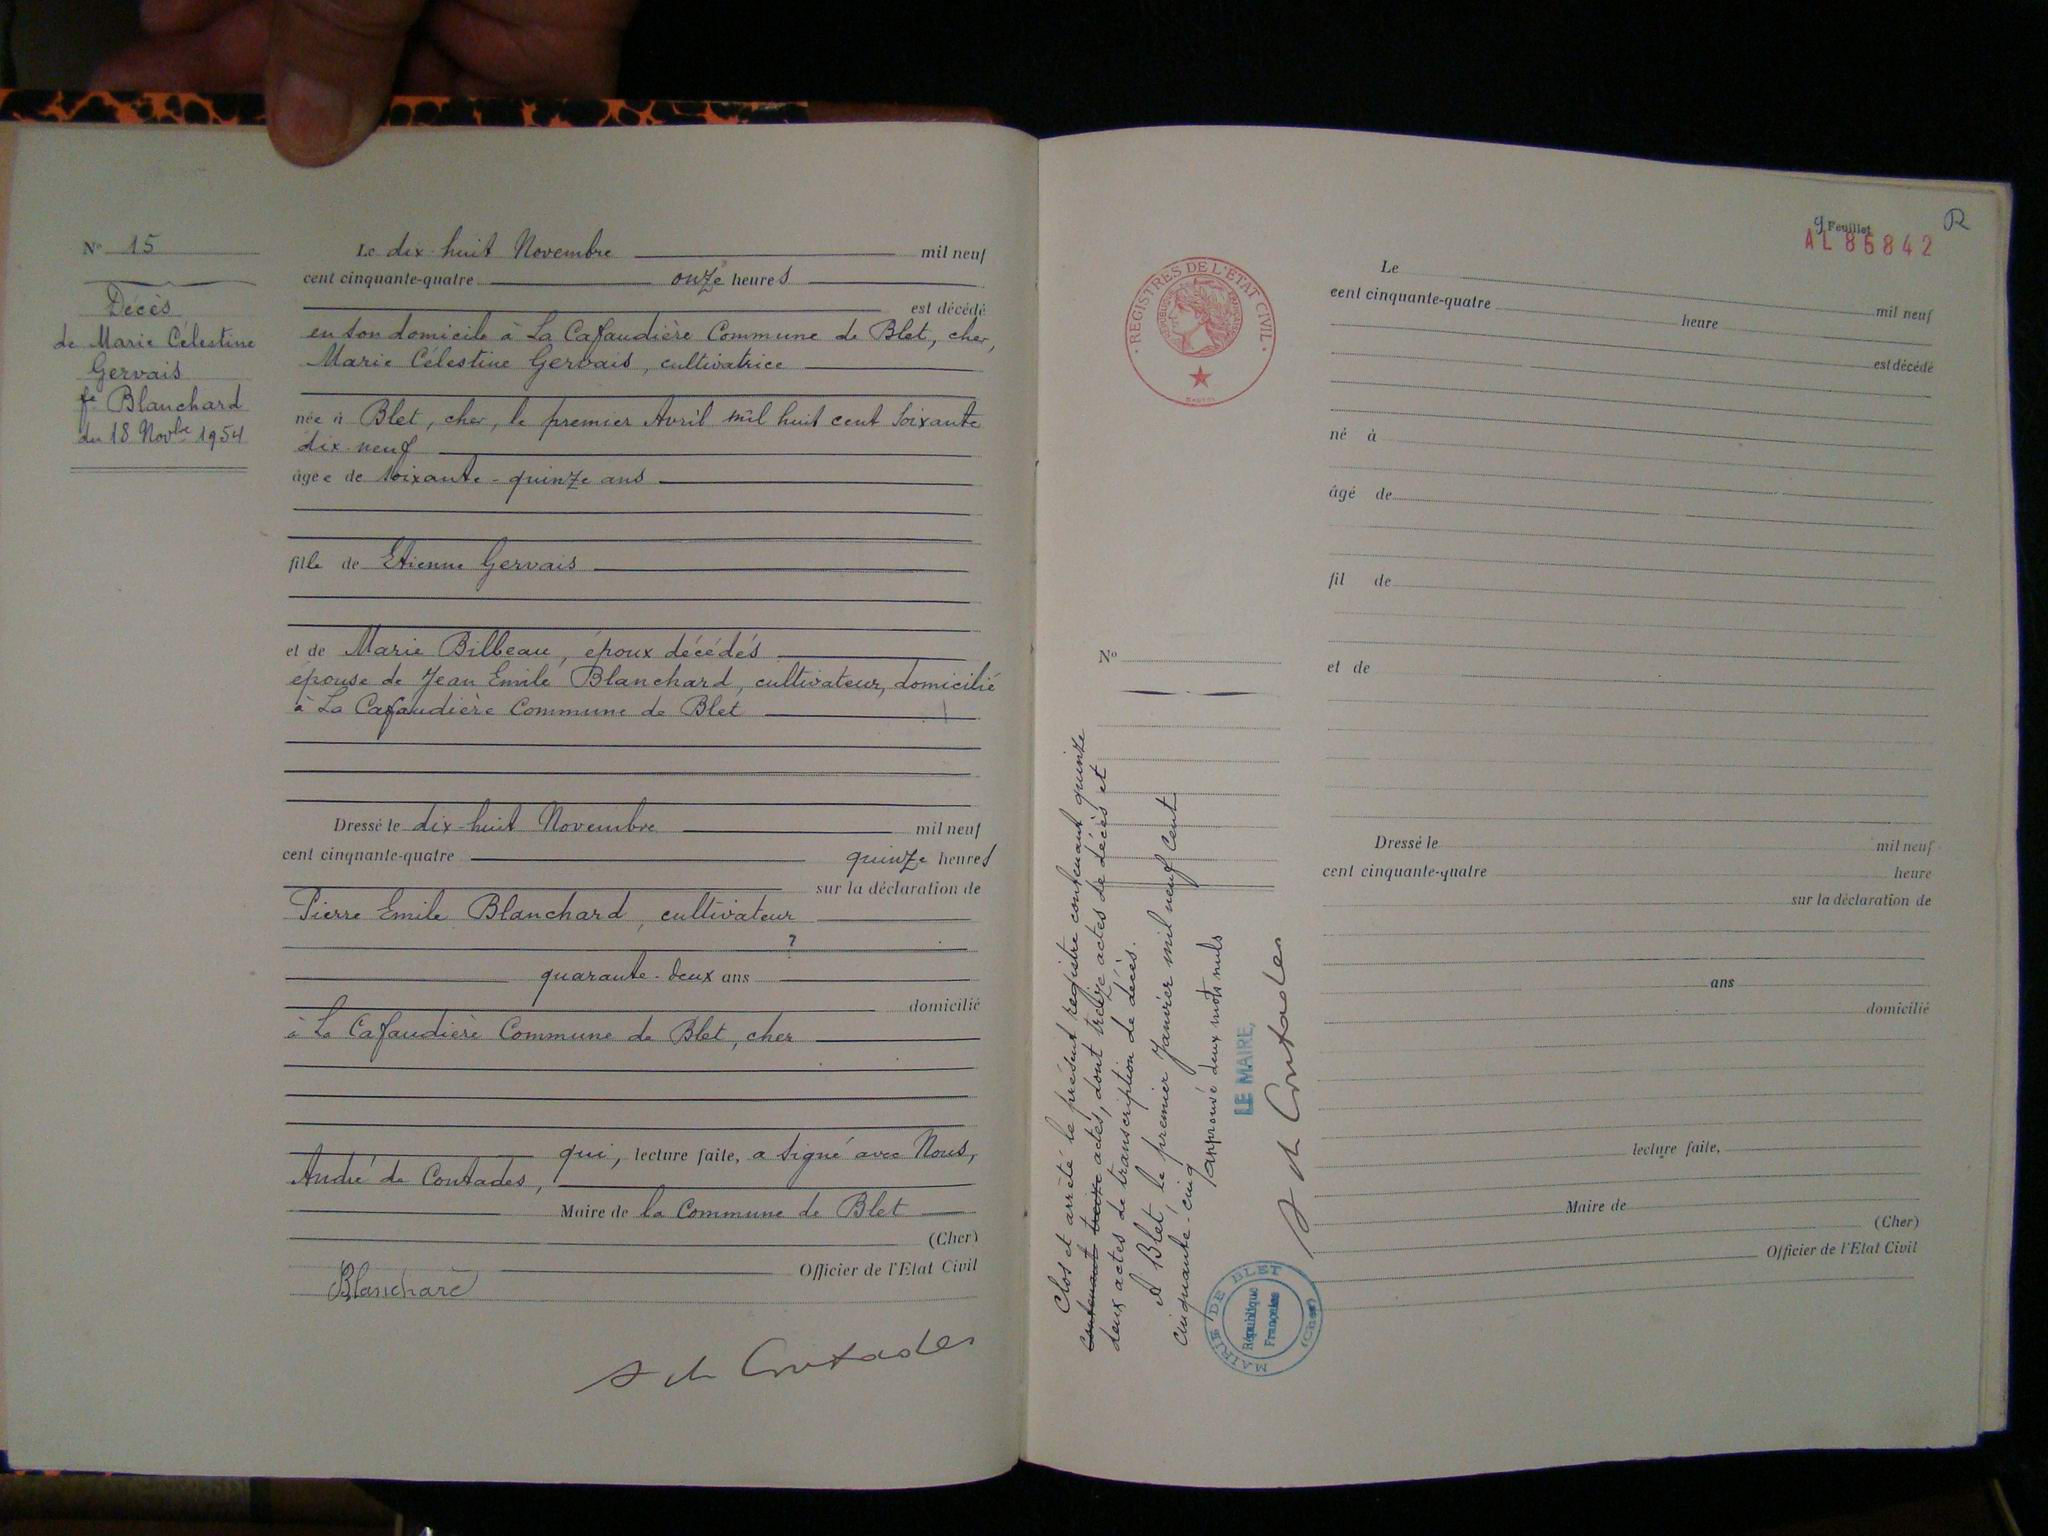 N° 15
Décès
de Marie Célestine
Gervais
fe Blanchard
du 18 Novbre 1954
Le dix-huit Novembre mil neuf
cent cinquante-quatre onze heures
est décédé
en son domicile à La Cafaudière Commune de Blet, cher,
Marie Célestine Gervais, cultivatrice
née à Blet, cher, le premier Avril mil huit cent soixante
dix-neuf
âgée de soixante-quinze ans
fille de Etienne Gervais
et de Marie Billeau, époux décédés
épouse de Jean Emile Blanchard, cultivateur, domicilié
à La Cafaudière Commune de Blet
Dressé le dix-huit Novembre mil neuf
cent cinquante-quatre quinze heures
sur la déclaration de
Pierre Emile Blanchard, cultivateur
?
quarante-deux ans
domicilié
à La Cafaudière Commune de Blet, cher
qui, lecture faite, a signé avec Nous,
André de Contades,
Maire de la Commune de Blet
(Cher)
Officier de l'Etat Civil
Blanchard
A de Contades
9 Feuillet
R
AL 85842
REGISTRES DE L'ETAT CIVIL
REPUBLIQUE FRANÇAISE
Le
mil neuf
cent cinquante-quatre heure
est décédé
né à
âgé de
fil de
et de
Dressé le mil neuf
cent cinquante-quatre heure
sur la déclaration de
ans
domicilié
lecture faite,
Maire de
(Cher)
Officier de l'Etat Civil
N°
Clos et arrêté le présent registre contenant quinze
contenant treize actes, dont treize actes de décès et
deux actes de transcription de décès.
A Blet le premier Janvier mil neuf cent
cinquante-cinq
approuvé deux mots nuls
LE MAIRE,
A de Contades
MAIRIE DE BLET
République
Française
(Cher)